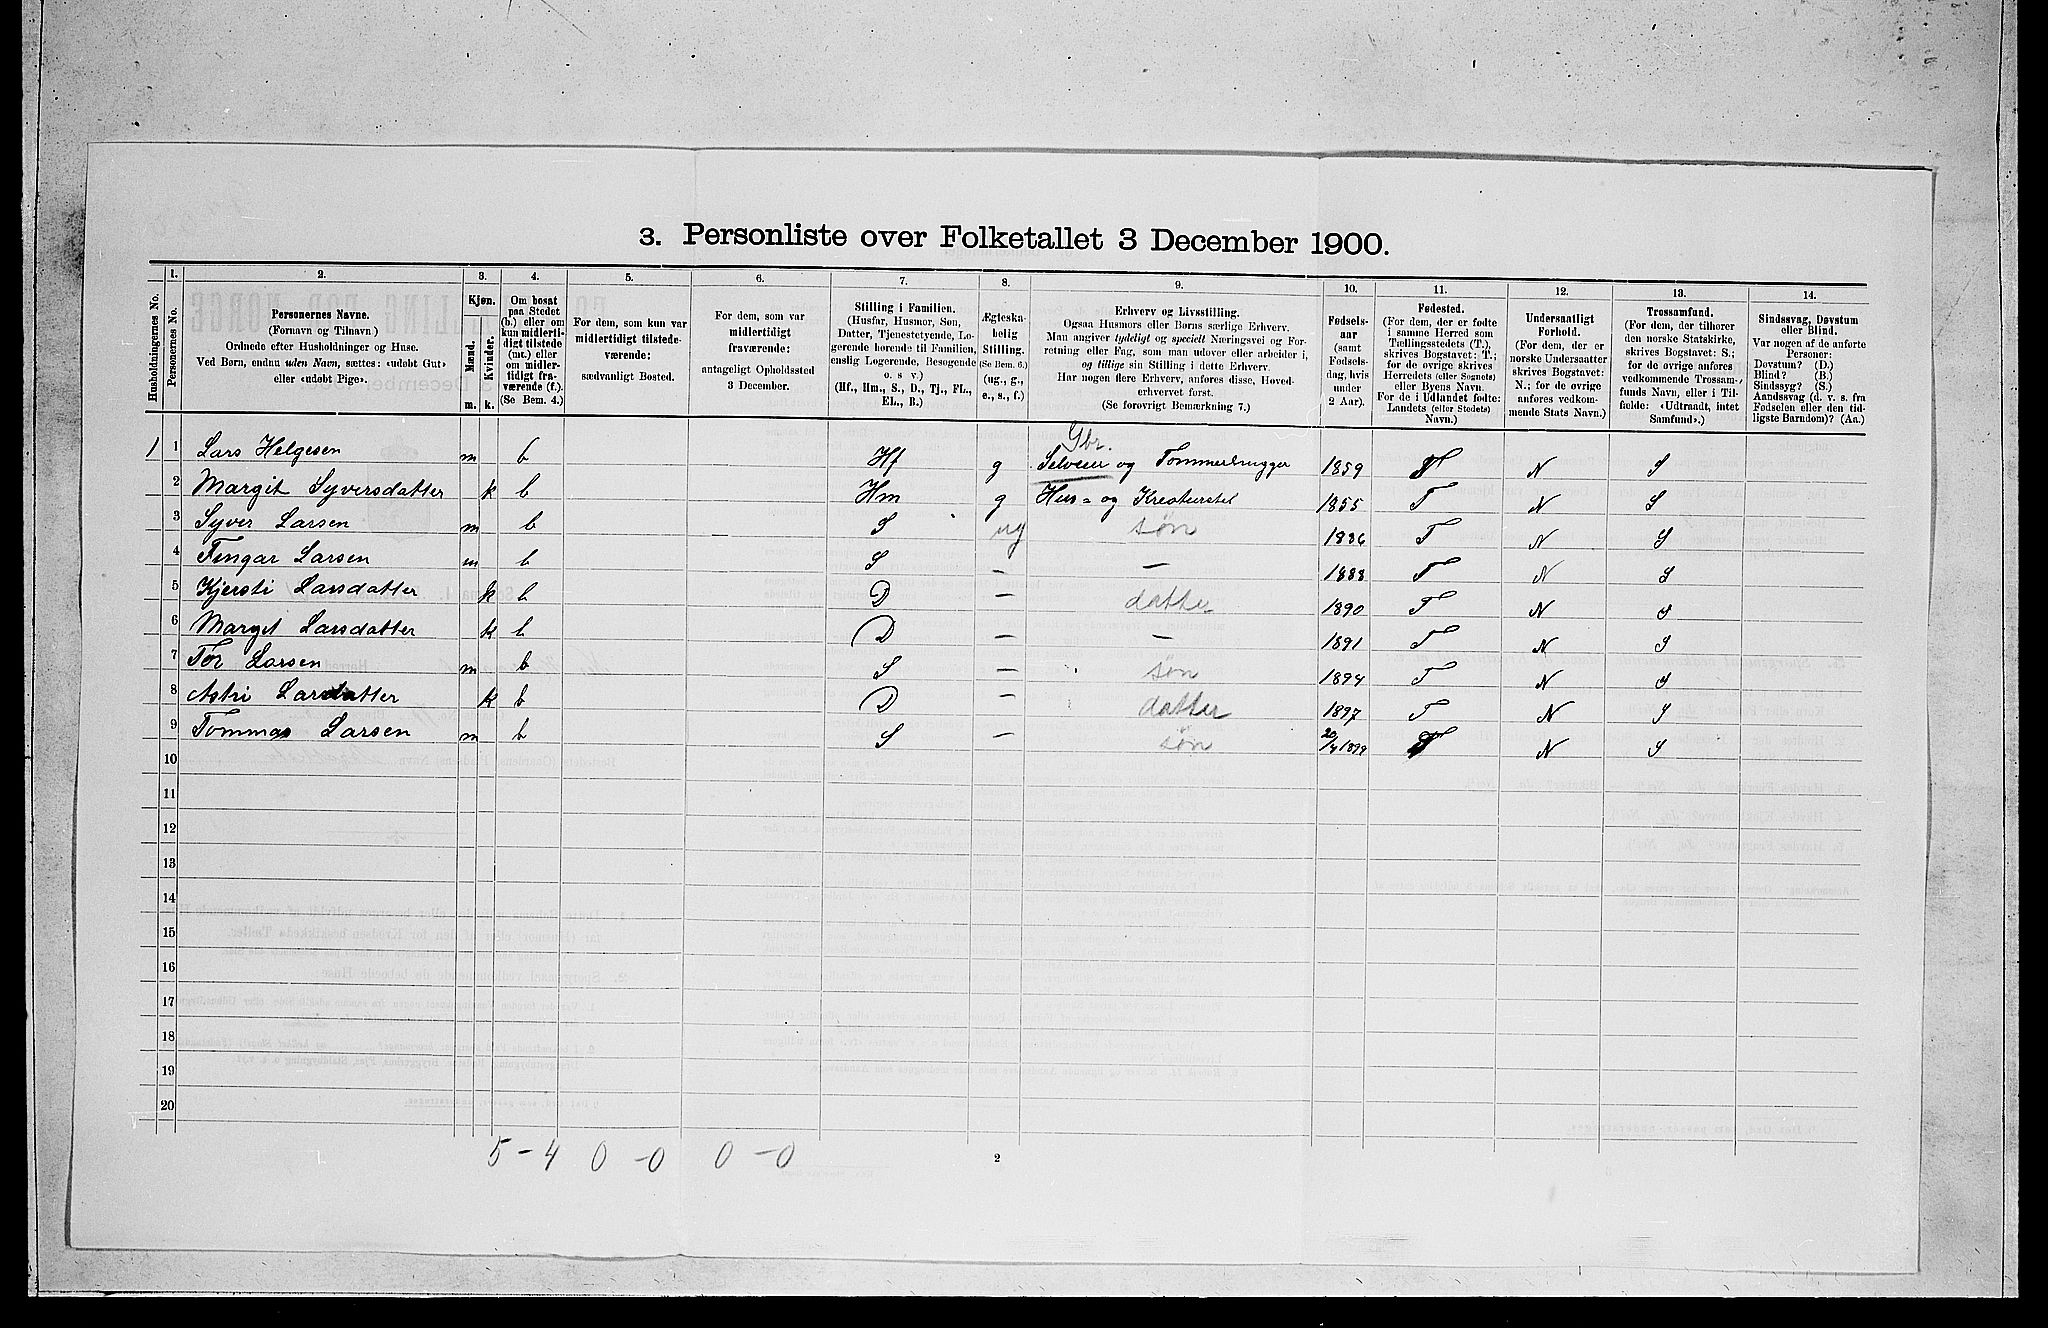 3. Personliste over Folketallet 3 December 1900.
Husholdningernes No.
1.
Personernes No.
2.
Personernes Navne.
(Fornavn og Tilnavn)
Ordnede efter Husholdninger og Huse.
Ved Børn, endnu uden Navn, sættes: «udøbt Gut»
eller «udøbt Pige».
3.
Kjøn.
Mænd.
Kvinder.
m.
k.
4.
Om bosat
paa Stedet
(b.) eller om
kun midlerti-
digt tilstede
(mt.) eller
om midler-
tidigt fra-
værende (f.).
(Se Bem. 4.)
5.
For dem, som kun var
midlertidigt tilstede-
værende:
sædvanligt Bosted.
6.
For dem, som var
midlertidigt
fraværende:
antageligt Opholdssted
3 December.
7.
Stilling i Familien.
(Husfar, Husmor, Søn,
Datter, Tjenestetyende, Lo-
gerende hørende til Familien,
enslig Logerende, Besøgende
o. s. v.)
(Hf., Hm., S., D., Tj., FL.,
EL., B.)
8.
Ægteska-
belig
Stilling.
(Se Bem. 6.)
(ug., g.,
e., s., f.)
9.
Erhverv og Livsstilling.
Ogsaa Husmors eller Børns særlige Erhverv.
Man angiver tydeligt og specielt Næringsvei og For-
retning eller Fag, som man udøver eller arbeider i,
og tillige sin Stilling i dette Erhverv.
Har nogen flere Erhverv, anføres disse, Hoved-
erhvervet først.
(Se forøvrigt Bemærkning 7.)
10.
Fødsels-
aar
(samt
Fødsels-
dag, hvis
under
2 Aar).
11.
Fødested.
(For dem, der er fødte
i samme Herred som
Tællingsstedets (T.),
skrives Bogstavet: T.;
for de øvrige skrives
Herredets (eller Sognets)
eller Byens Navn.
For de i Udlandet fødte:
Landets (eller Stedets)
Navn.)
12.
Undersaatligt
Forhold.
(For dem, der er
norske Undersaatter
skrives Bogstavet:
N.; for de øvrige
anføres vedkom-
mende Stats Navn.)
13.
Trossamfund.
(For dem, der tilhører
den norske Statskirke,
skrives Bogstavet: S.;
for de øvrige anføres
vedkommende Trossam-
funds Navn, eller i Til-
fælde: «Udtraadt, intet
Samfund».)
14.
Sindssvag, Døvstum
eller Blind.
Var nogen af de anførte
Personer:
Døvstum? (D.)
Blind? (B.)
Sindssyg? (S.)
Aandssvag (d. v. s. fra
Fødselen eller den tid-
ligste Barndom)? (Aa.)
Gbr.
1 1 Lars Helgesen m b Hf g Selveier og Tømmerhugger 1859 T N S
2 Margit Syversdatter k b Hm g Hus- og Kreaturstel 1855 T N S
3 Syver Larsen m b S ug søn 1886 T N S
4 Fingar Larsen m b S — — 1888 T N S
5 Kjersti Larsdatter k b D — datter 1890 T N S
6 Margit Larsdatter k b D — — 1891 T N S
7 Tor Larsen m b S — søn 1894 T N S
8 Astri Larsdatter k b D — datter 1897 T N S
9 Tommas Larsen m b S — søn 20/4 1899 T N S
10
11
12
13
14
15
16
17
18
19
20
5 - 4 0 - 0 0 - 0
2